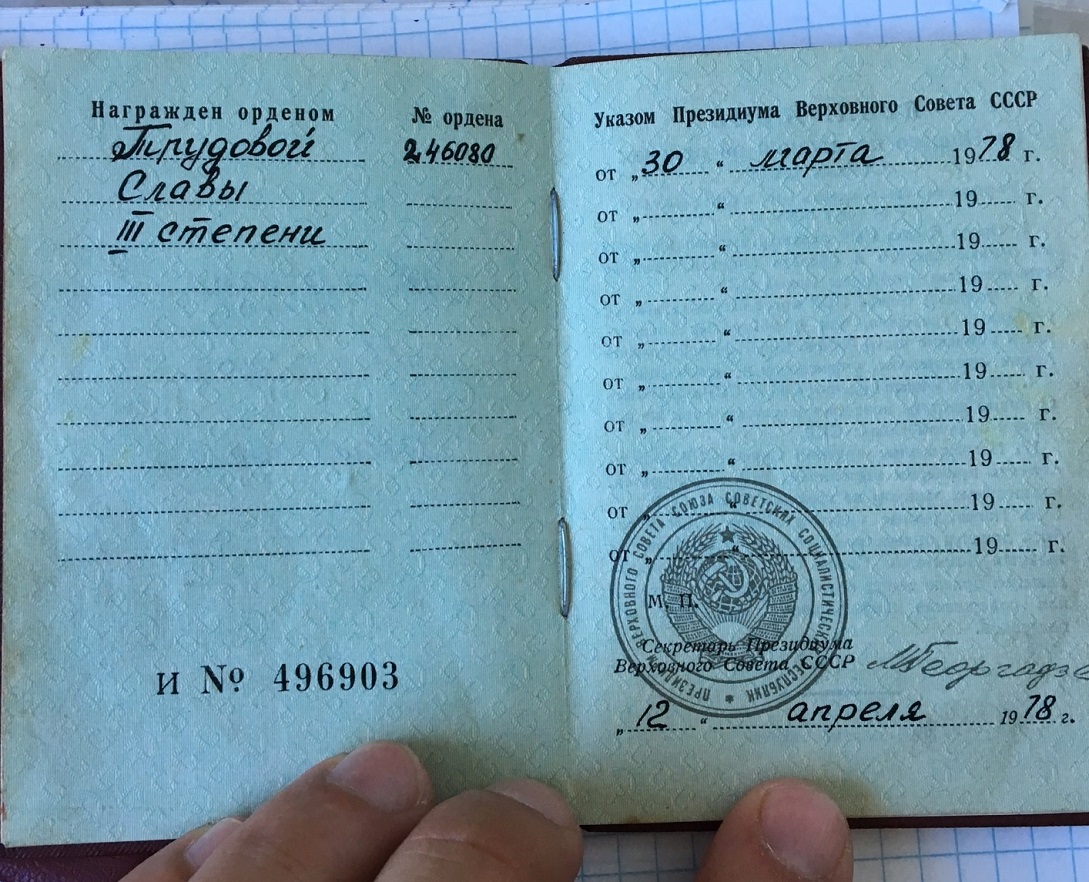 Награжден орденом № ордена
Трудовой 246080
Славы
III степени
И № 496903
Указом Президиума Верховного Совета СССР
от „30“ марта 1978 г.
от „ “ 19 г.
от „ “ 19 г.
от „ “ 19 г.
от „ “ 19 г.
от „ “ 19 г.
от „ “ 19 г.
от „ “ 19 г.
от „ “ 19 г.
от „ “ 19 г.
ПРЕЗИДИУМ ВЕРХОВНОГО СОВЕТА СОЮЗА СОВЕТСКИХ СОЦИАЛИСТИЧЕСКИХ РЕСПУБЛИК
М. П.
Секретарь Президиума
Верховного Совета СССР МГеоргадзе
„12“ апреля 1978 г.